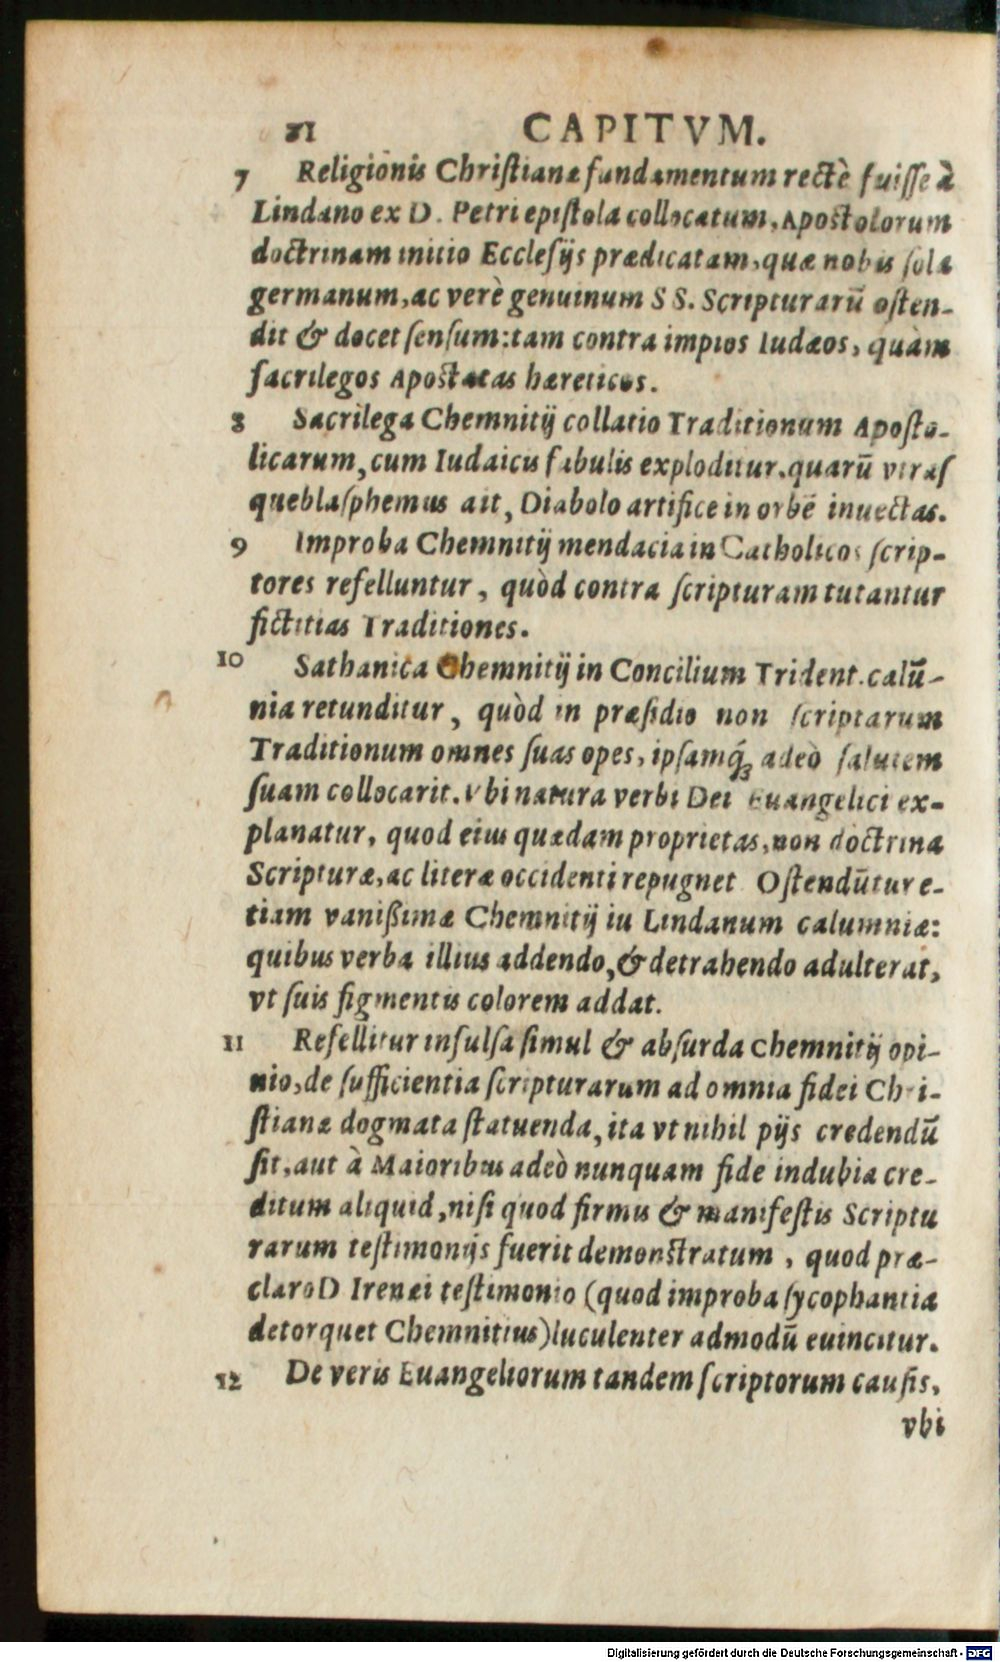 21 CAPITVM.
7 Religionis Christianæ fundamentum rectè fuisse à
Lindano ex D. Petri epistola collocatum, Apostolorum
doctrinam initio Ecclesijs prædicatam, quæ nobis sola
germanum, ac verè genuinum SS. Scripturarū osten-
dit & docet sensum: tam contra impios Iudæos, quàm
sacrilegos Apostatas hæreticos.
8 Sacrilega Chemnitij collatio Traditionum Aposto-
licarum, cum Iudaicis fabulis exploditur. quarū vtras
que blasphemus ait, Diabolo artifice in orbē inuectas.
9 Improba Chemnitij mendacia in Catholicos scrip-
tores refelluntur, quòd contra scripturam tutantur
fictitias Traditiones.
10 Sathanica Chemnitij in Concilium Trident. calū-
nia retunditur, quòd in præsidio non scriptarum
Traditionum omnes suas opes, ipsamq́; adeò salutem
suam collocarit. Vbi natura verbi Dei Euangelici ex-
planatur, quod eius quædam proprietas, non doctrina
Scripturæ, ac literæ occidenti repugnet Ostendūtur e-
tiam vanißimæ Chemnitij iu Lindanum calumniæ:
quibus verba illius addendo, & detrahendo adulterat,
vt suis figmentis colorem addat.
11 Refellitur insulsa simul & absurda Chemnitij opi-
nio, de sufficientia scripturarum ad omnia fidei Chri-
stianæ dogmata statuenda, ita vt nihil pijs credendū
sit, aut à Maioribus adeò nunquam fide indubia cre-
ditum aliquid, nisi quod firmis & manifestis Scriptu
rarum testimonijs fuerit demonstratum, quod præ-
claro D Irenæi testimonio (quod improba sycophantia
detorquet Chemnitius) luculenter admodū euincitur.
12 De veris Euangeliorum tandem scriptorum causis,
vbi
Digitalisierung gefördert durch die Deutsche Forschungsgemeinschaft - DFG